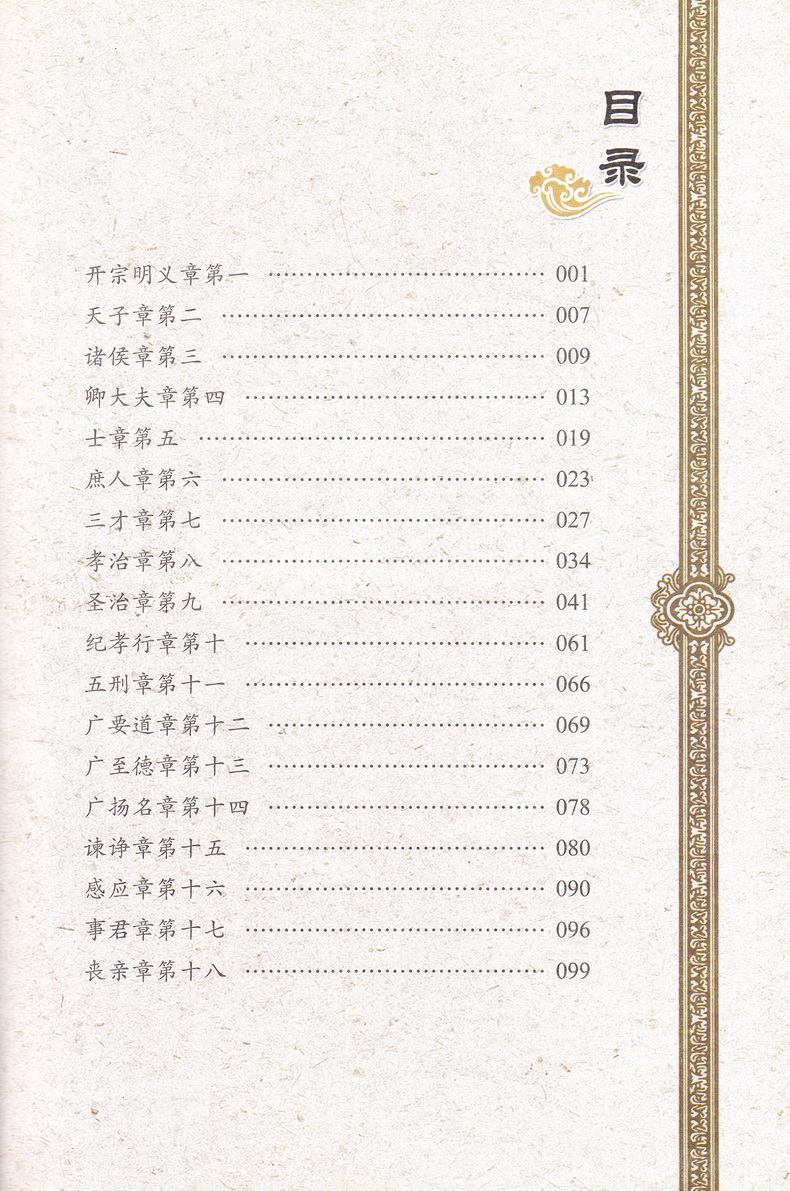 目录
开宗明义章第一 ………………………… 001
天子章第二 ………………………… 007
诸侯章第三 ………………………… 009
卿大夫章第四 ………………………… 013
士章第五 ………………………… 019
庶人章第六 ………………………… 023
三才章第七 ………………………… 027
孝治章第八 ………………………… 034
圣治章第九 ………………………… 041
纪孝行章第十 ………………………… 061
五刑章第十一 ………………………… 066
广要道章第十二 ………………………… 069
广至德章第十三 ………………………… 073
广扬名章第十四 ………………………… 078
谏诤章第十五 ………………………… 080
感应章第十六 ………………………… 090
事君章第十七 ………………………… 096
丧亲章第十八 ………………………… 099